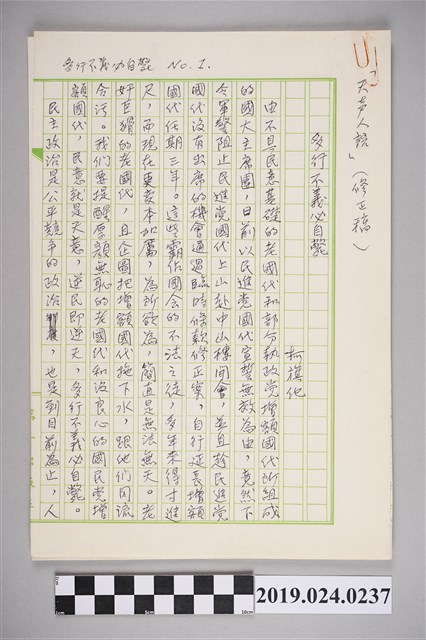 多行不義必自斃 No. 1.
天声人語」(修正稿)
多行不義必自斃
柯旗化
由不具民意基礎的老國代和部分執政党增額國代所組成
的國大主席團,日前以民進党國代宣誓無效為由,竟然下
令軍警阻止民進党國代上山赴中山樓開會,並且趁民進党
國代沒有出席的機會通過臨時條款修正案,自行延長增額
國代任期三年。這些霸佔國会的不法之徒,多年來得寸進
尺,而現在更變本加厲,為所欲為,簡直是無法無天。老
奸巨猾的老國代,且企圖把增額國代拖下水,跟他們同流
合污。我們要提醒厚顏無恥的老國代和沒良心的國民党增
額國代,民意就是天意,逆民即逆天,多行不義必自斃。
民主政治是公平競爭的政治,也是到目前為止,人
1cm
5cm
10cm
2019.024.0237